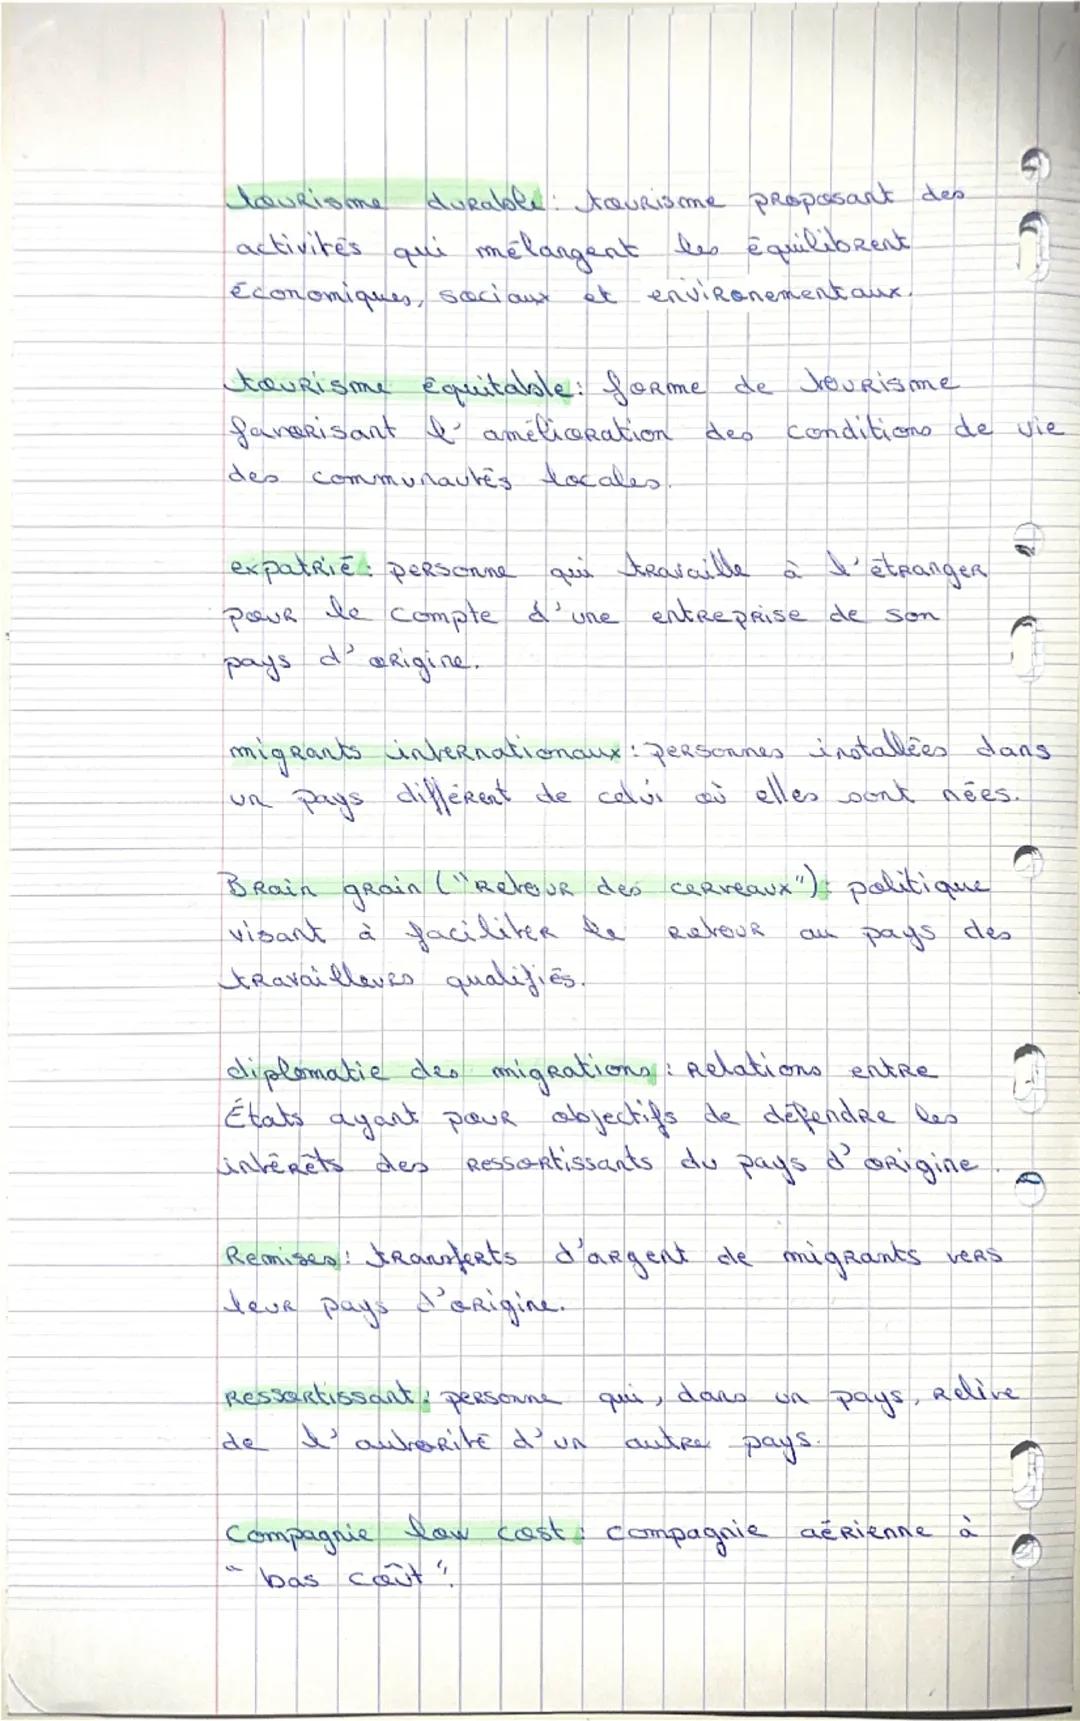 tourisme durable : tourisme proposant des
activités qui mélangent les équilibrent
économiques, sociaux et environementaux.
tourisme équitable : forme de tourisme
favorisant l'amélioration des conditions de vie
des communautés locales.
expatrié : personne qui travaille à l'étranger
pour le compte d'une entreprise de son
pays d'origine.
migrants internationaux : personnes installées dans
un pays différent de celui où elles sont nées.
Brain grain ("Retour des cerveaux") : politique
visant à faciliter le retour au pays des
travailleurs qualifiés.
diplomatie des migrations : relations entre
États ayant pour objectifs de défendre les
intérêts des ressortissants du pays d'origine.
Remises : transferts d'argent de migrants vers
leur pays d'origine.
Ressortissant : personne qui, dans un pays, relive
de l'autorité d'un autre pays.
Compagnie low cost : compagnie aérienne à
"bas coût".